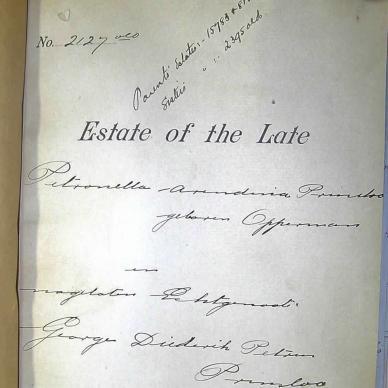 No. 2127 OLO
Parents' Estates:- 15783 &
Sister's " :- 2395 OLO
Estate of the Late
Petronella Arendina Prinsloo
geboren Opperman
en
nagelaten Echtgenoot:
George Diederik Petrus
Prinsloo